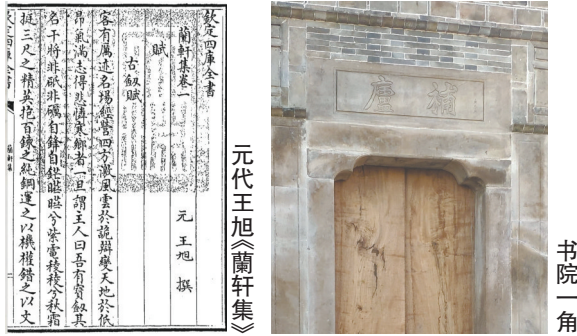 欽定四庫全書
蘭軒集卷一
元 王旭 撰
賦
古劒賦
客有厲迹名場經營四方激風雲於詭辯變天地於低
昂氣滿志得悲憤寒鄉者一旦謂主人曰吾有寳劒其
名干將非砥非礪自鋒自 兮紫電稜稜兮秋霜
挺三尺之精英抱百鍊之純鋼運之以機權錯之以文
欽定四庫全書
蘭軒集
元代王旭《蘭轩集》
书院一角